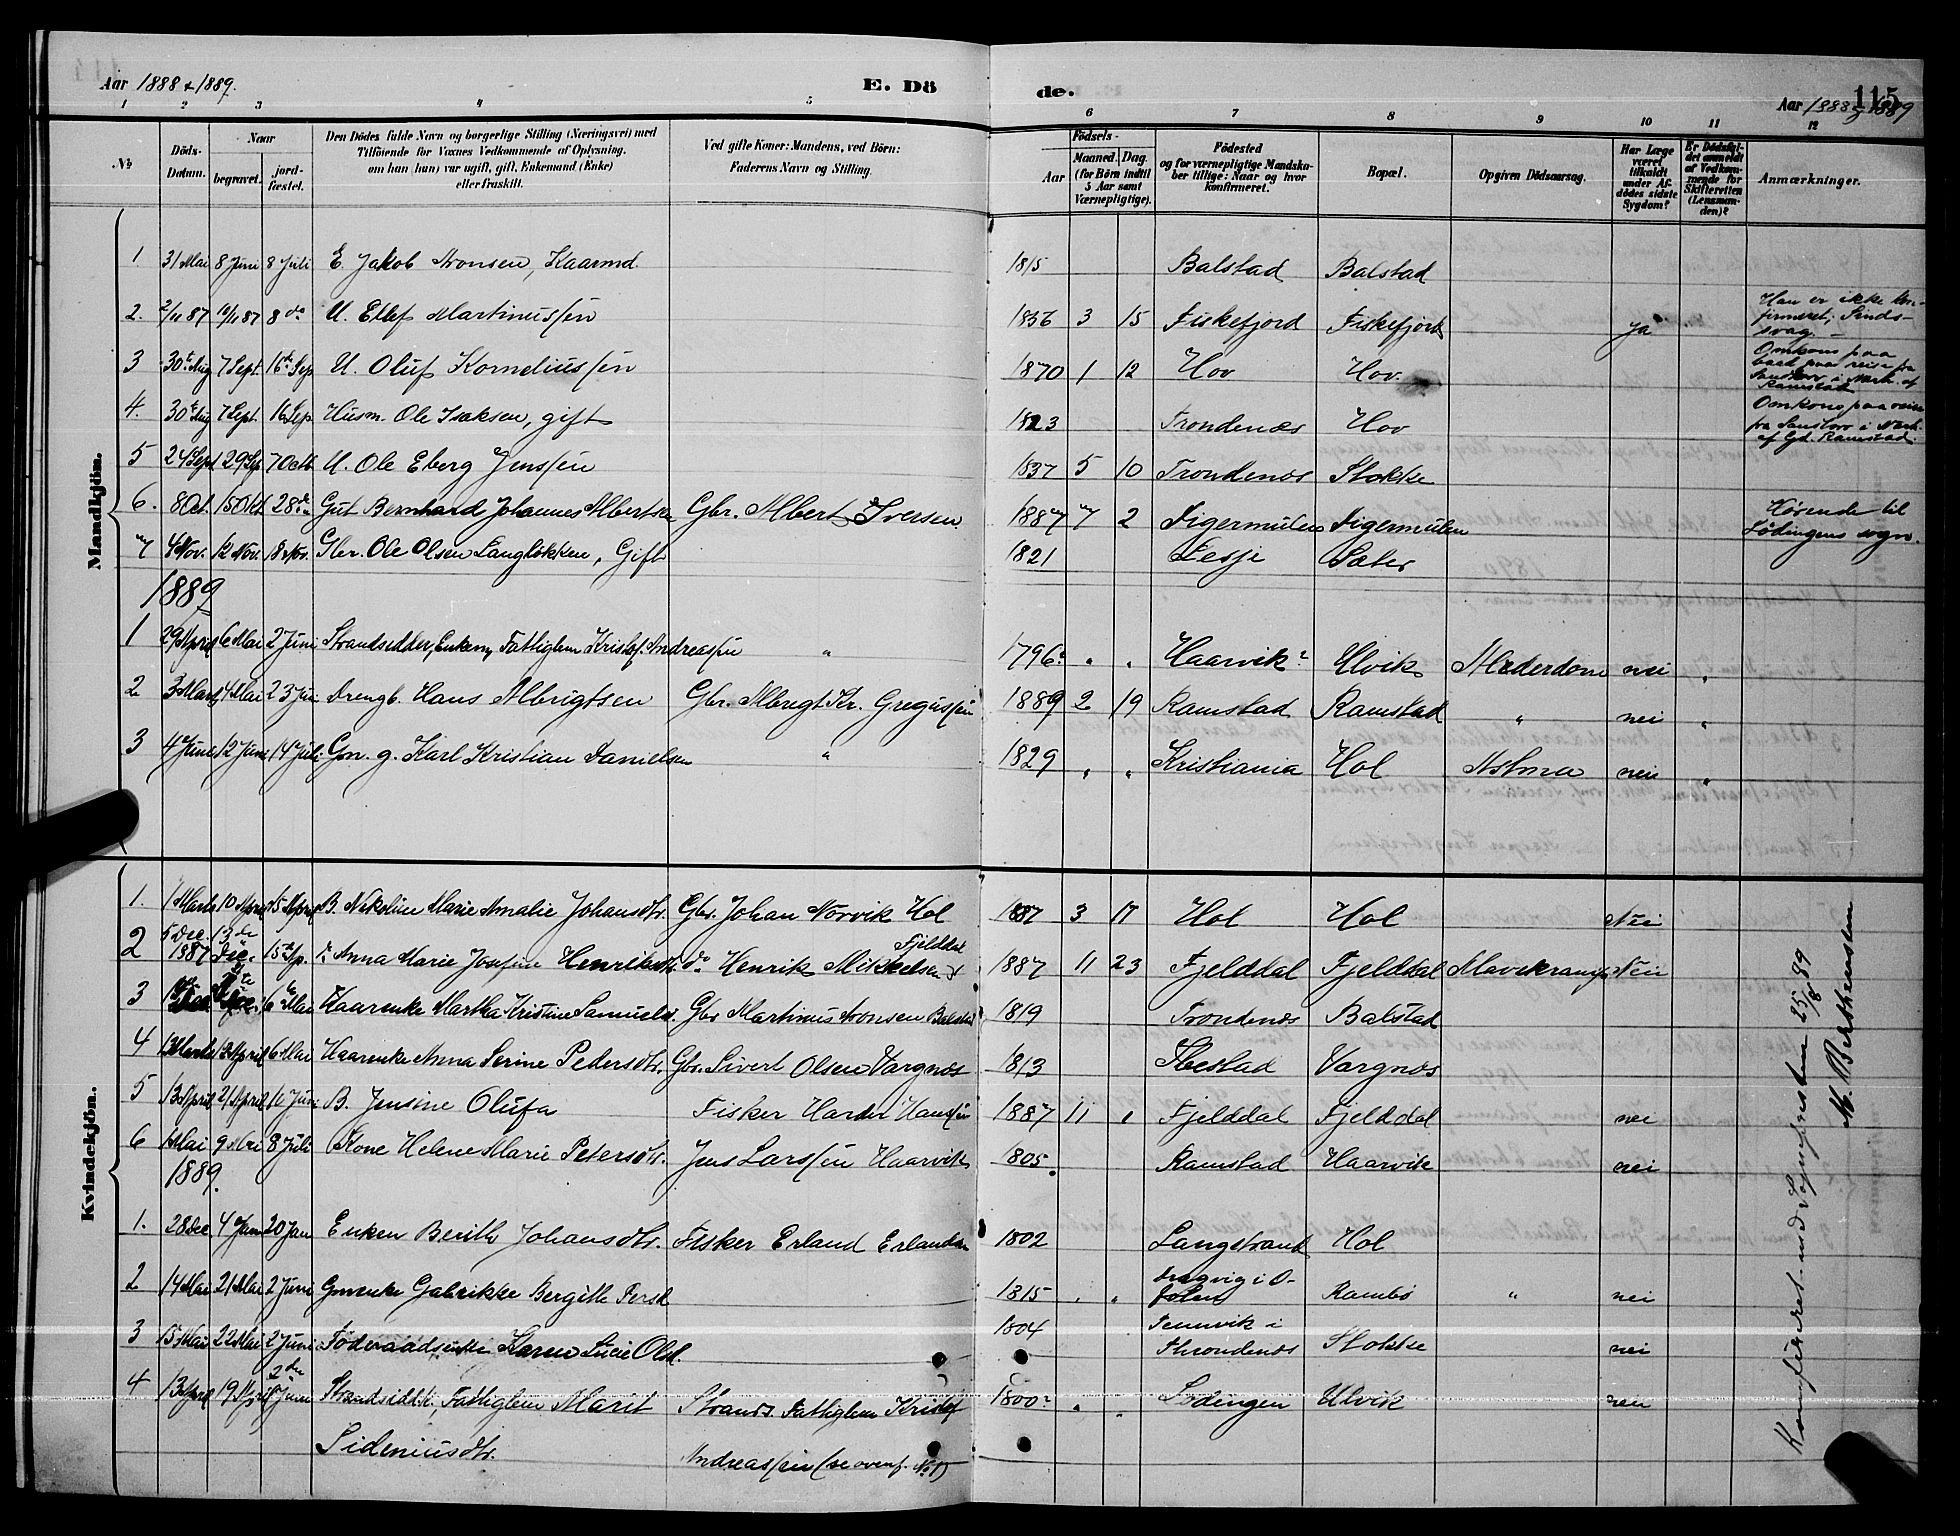 Aar 1888 + 1889.
E. Dö
de.
115
Aar 1888 & 1889
1 2 3 4 5 6 7 8 9 10 11 12
№
Döds-Datum.
Naar
begravet.
jordfæstet.
Den Dödes fulde Navn og borgerlige Stilling (Næringsvei) med
Tilföiende for Voxnes Vedkommende af Oplysning,
om han (hun) var ugift, gift, Enkemand (Enke)
eller fraskilt.
Ved gifte Koner: Mandens, ved Börn:
Faderens Navn og Stilling.
Födsels-
Aar
Maaned. Dag.
(for Börn indtil
5 Aar samt
Værnepligtige).
Födested
og for værnepligtige Mandskaber tillige: Naar og hvor
konfirmeret.
Bopæl.
Opgiven Dödsaarsag.
Har Læge
været
tilkaldt
under Afdödes sidste
Sygdom?
Er Dödsfaldet anmeldt
af Vedkommende for
Skifteretten
(Lensmanden)?
Anmærkninger.
Mandkjön.
1 31 Mai 8 Juni 8 Juli E. Jakob Aronsen, Kaarmd. 1815 Balstad Balstad
2. 2/11 87 10/11 87 8 do U. Ellef Martinussen 1836 3 15 Fiskefjord Fiskefjord ja Han er ikke konfirmeret; Sindssvag.
3 30te Aug 7 Sept. 16de Sep U. Oluf Korneliussen 1870 1 12 Hov Hov. Omkom paa
4. 30te Aug 7 Sept. 16 Sep Husm. Ole Isaksen, gift 1823 Trondenæs Hov Omkom paa reise
fra Sandtorv i Mark.
af Gd. Ramstad
5 24 Sept 29 Sep 7 Octb U. Ole Eberg Jenssen 1837 5 10 Trondenæs Stokke
6. 8 Oct. 15 Okt. 28de Gut Bernhard Johannes Albertsen Gbr. Albert Iversen 1887 7 2 Digermulen Digermulen Hörende til
Lödingens sogn.
7 4 Nov. 12 Nov. 18 Nov. Gbr. Ole Olsen Langlökken, Gift 1821 Lesje Sæter
1889
1 29 April 6 Mai 2 Juni Strandsidder, Enkem, Fattiglem Kristof. Andreassen " 1796? " " Haarvik? Ulvik Alderdom nei "
2 3 Marts 4 Mai 23 Jun Drengb. Hans Albrigtsen Gbr. Albregt Kr. Gregussen 1889 2 19 Ramstad Ramstad " nei "
3 4 Juni 12 Juni 14 Juli Gm. g. Karl Kristian Danielsen " 1829 " " Kristiania Hol Astma nei "
Kvindekjön.
1. 1 Marts 10 April 15 April B. Nikoline Marie Amalie Johansdtr. Gbr. Johan Norvik Hol 1887 3 17 Hol Hol Nei
2 5 Dec. 1887 13de Dec. 15de Ap. Anna Marie Josefine Henriksdtr do Henrik Mikkelsen Fjelddal 1887 11 23 Fjelddal Fjelddal Mavekrampe Nei
3 6te Mai Kaarenke Martha Kristine Samuelsd. Gbr Martinus Aronsen Balstad 1819 Trondenæs Balstad
4 13 Marts 2 April 6 Mai Kaarenke Anna Serine Pedersdtr. Gbr. Sivert Olsen Vargnæs 1813 Ibestad Vargnæs
5 13 April 21 April 10 Juni B. Jensine Olufa Fisker Harder Hanssen 1887 11 " Fjelddal Fjelddal nei
6 1 Mai 9 Mai 8 Juli Kone Helene Marie Petersdtr. Jens Larssen Haarvik 1805. Ramstad Haarvik nei
1889.
1. 28 Dec 4 Jan 20 Jan Enken Berith Johansdtr. Fisker Erland Erlandsen 1802 Langstrand Hol
2 14 Mai 21 Mai 2 Juni Gmenke Gabrikke Bergitte Persd 1815 " " i Ofoten Rambö " nei
3 15 Mai 22 Mai 2 Juni Föderaadsenke Karen Lucie Olsd. 1804 Tennvik i
Throndenæs Stokke nei
4 13 April 19 April 2den Juni Strandsidd.k., Fattiglem Marit
Sideniusdtr. Strands. Fattiglem Kristof
Andreassen (se ovenf. No 1) 1800? " " Lödingen Ulvik nei
Konfereret med Sognepresten 25/8 89
M. Berthensten